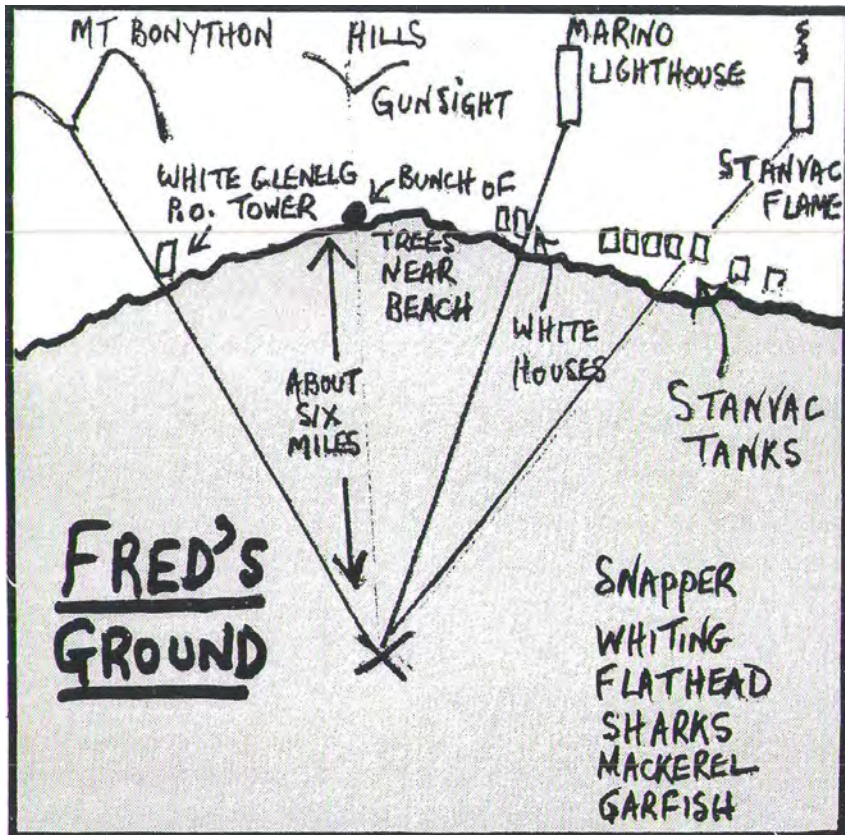 MT BONYTHON
HILLS
GUNSIGHT
MARINO
LIGHTHOUSE
STANVAC
FLAME
WHITE GLENELG
P.O. TOWER
BUNCH OF
TREES
NEAR
BEACH
WHITE
HOUSES
STANVAC
TANKS
ABOUT
SIX
MILES
FRED'S
GROUND
SNAPPER
WHITING
FLATHEAD
SHARKS
MACKEREL
GARFISH